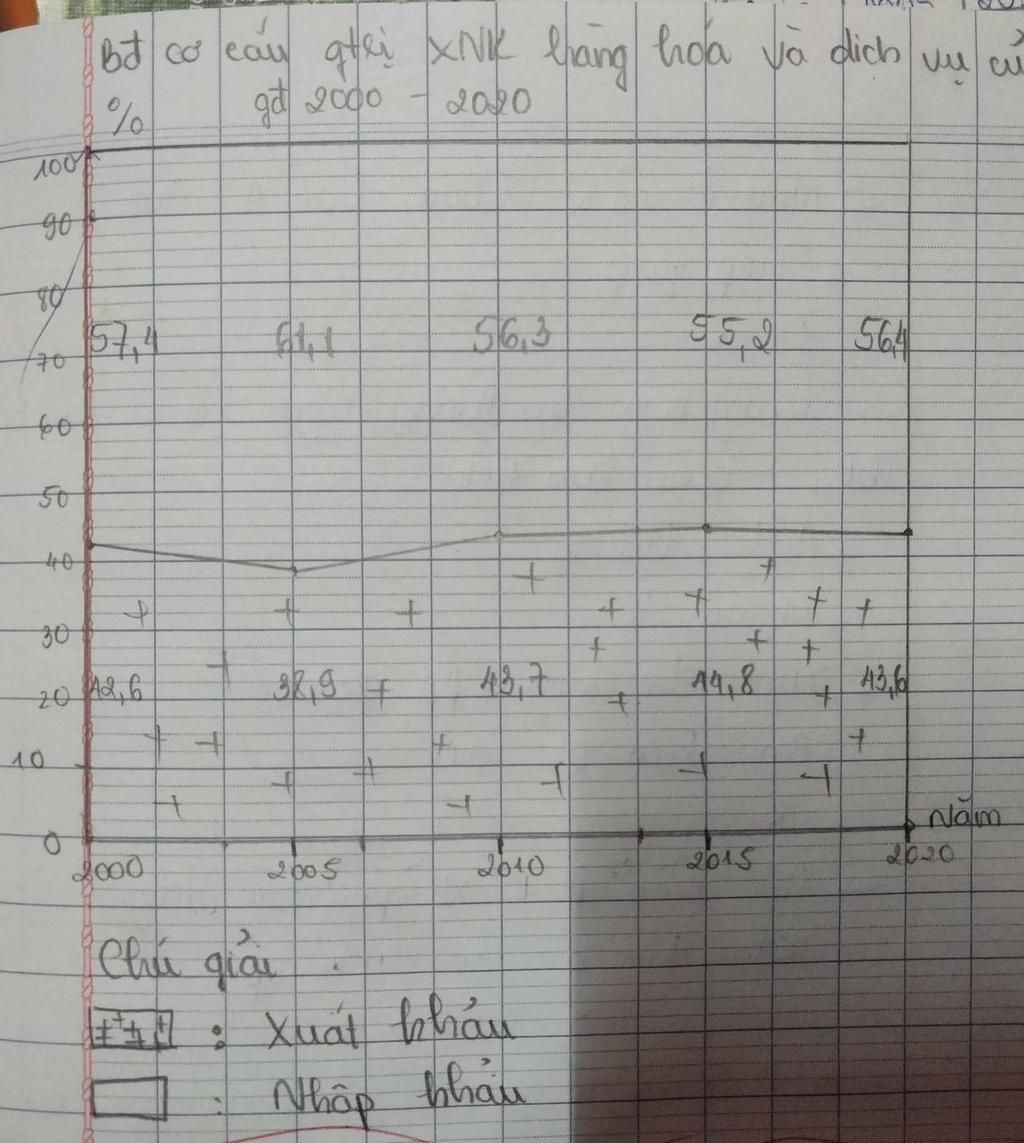 Bđ cơ cấu gtrị XNK hàng hóa và dich vụ củ
% gđ 2000 - 2020
100
90
80
57,4 61,1 56,3 55,2 56,4
70
60
50
40
30
20 42,6 38,9 43,7 44,8 43,6
10
0 Năm
2000 2005 2010 2015 2020
Chú giải
: Xuất khẩu
: Nhập khẩu